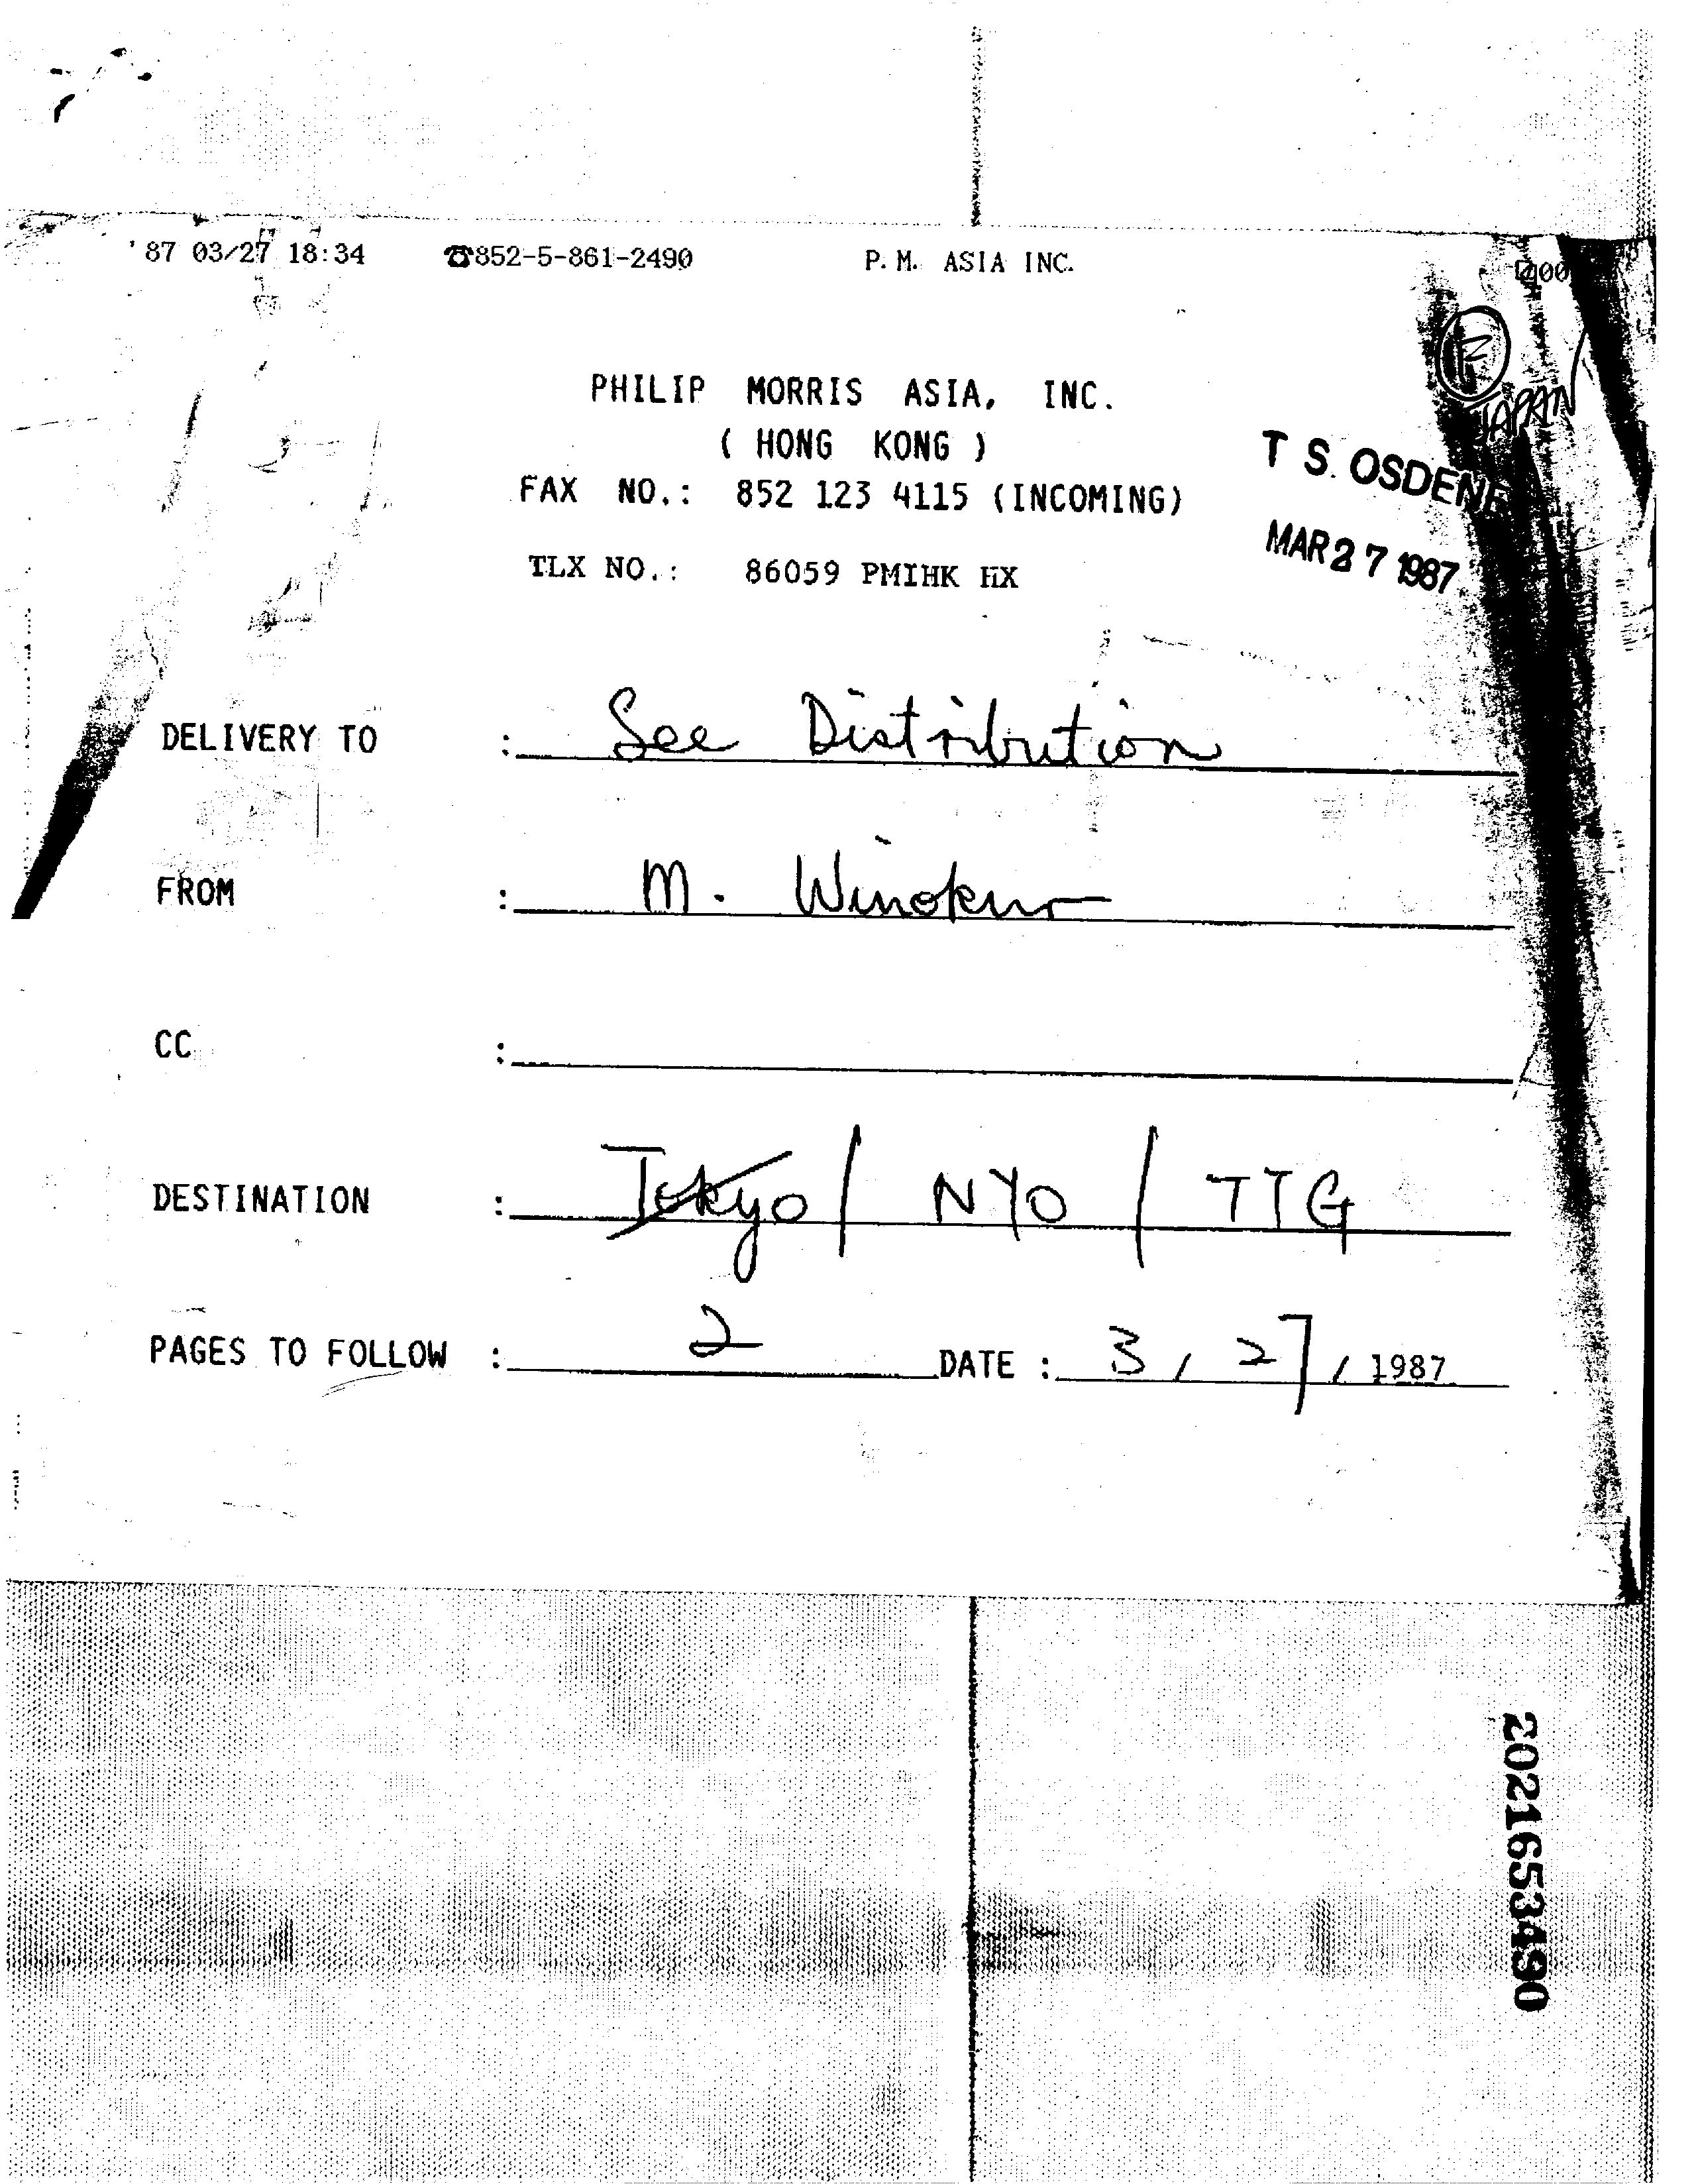 '87 03/27 18:34 ☎852-5-861-2490 P.M. ASIA INC.
PHILIP MORRIS ASIA, INC.
( HONG KONG )
FAX NO.: 852 123 4115 (INCOMING)
TLX NO.: 86059 PMIHK HX
JAPAN
T S. OSDENE
MAR 27 1987
DELIVERY TO : See Distribution
FROM : M. Winokur
CC :
DESTINATION : Tokyo / NYO / TTG
PAGES TO FOLLOW : 2 DATE : 3 / 27 / 1987
2021653490